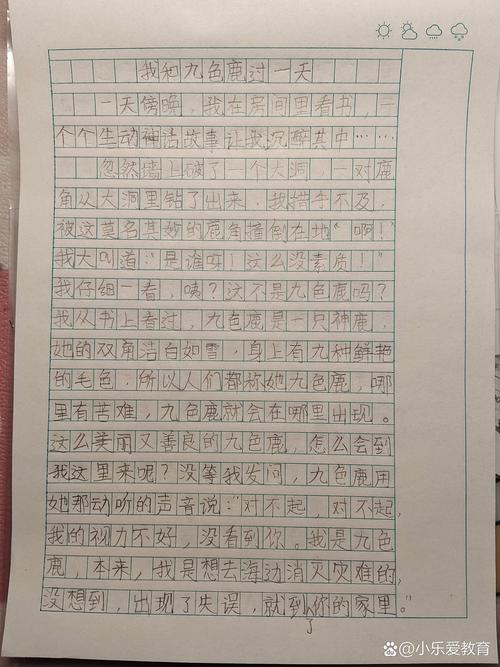 我和九色鹿过一天
一天傍晚，我在房间里看书，一
个个生动神话故事让我沉醉其中……
忽然墙上破了一个大洞，一对鹿
角从大洞里钻了出来，我措手不及，
被这莫名其妙的鹿角撞倒在地“啊！”
我大叫道：“是谁呀！这么没素质！”
我仔细一看，咦？这不是九色鹿吗？
我从书上看过，九色鹿是一只神鹿，
她的双角洁白如雪，身上有九种鲜艳
的毛色，所以人们都称她九色鹿，哪
里有苦难，九色鹿就会在哪里出现。
这么美丽又善良的九色鹿，怎么会到
我这里来呢？没等我发问，九色鹿用
她那动听的声音说：“对不起，对不起，
我的视力不好，没看到你。我是九色
鹿，本来，我是想去海边消灭灾难的，
没想到，出现了失误，就到了你的家里。”
小乐爱教育